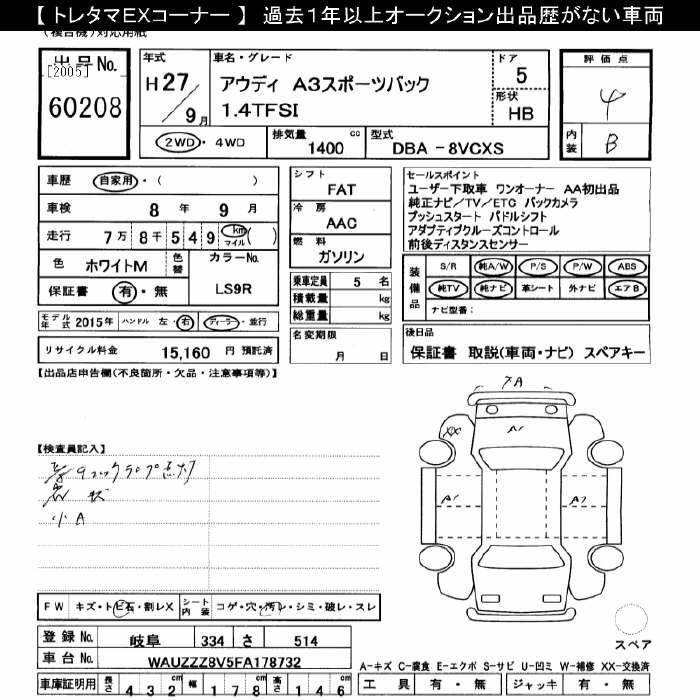 【 トレタマEXコーナー 】 過去１年以上オークション出品歴がない車両
(複合機)対応用紙
出品No. [2005] 60208
年式 H27/9月
車名・グレード アウディ A3スポーツバック 1.4TFSI
ドア 5
形状 HB
2WD・4WD
排気量 1400 cc
型式 DBA－8VCXS
評価点 4
内装 B
車歴 自家用・( )
車検 8年 9月
走行 7万8千549 km マイル ( )
色 ホワイトM 色替 カラーNo. LS9R
保証書 有・無
モデル年式 2015年 ハンドル 左・右 ディーラー・並行
リサイクル料金 15,160 円 預託済
シフト FAT
冷房 AAC
燃料 ガソリン
乗車定員 5 名
積載量 kg
総重量 kg
名変期限 月 日
セールスポイント
ユーザー下取車 ワンオーナー AA初出品
純正ナビ／TV／ETG バックカメラ
プッシュスタート パドルシフト
アダプティブクルーズコントロール
前後ディスタンスセンサー
装備品 S/R 純A/W P/S P/W ABS
純TV 純ナビ 革シート 外ナビ エアB
ナビ型番：
後日品
保証書 取説(車両・ナビ) スペアキー
【出品店申告欄(不良箇所・欠品・注意事項等)】
【検査員記入】
小A
XA
XX
A1
A1
A2
FW キズ・トビ石・割レX シート内装 コゲ・穴・汚レ・シミ・破レ・スレ
登録No. 岐阜 334 さ 514
車台No. WAUZZZ8V5FA178732
車庫証明用 長さ 432cm 幅 178cm 高さ 146cm
スペア
A－キズ C－腐食 E－エクボ S－サビ U－凹ミ W－補修 XX－交換済
工具 有・無 ジャッキ 有・無